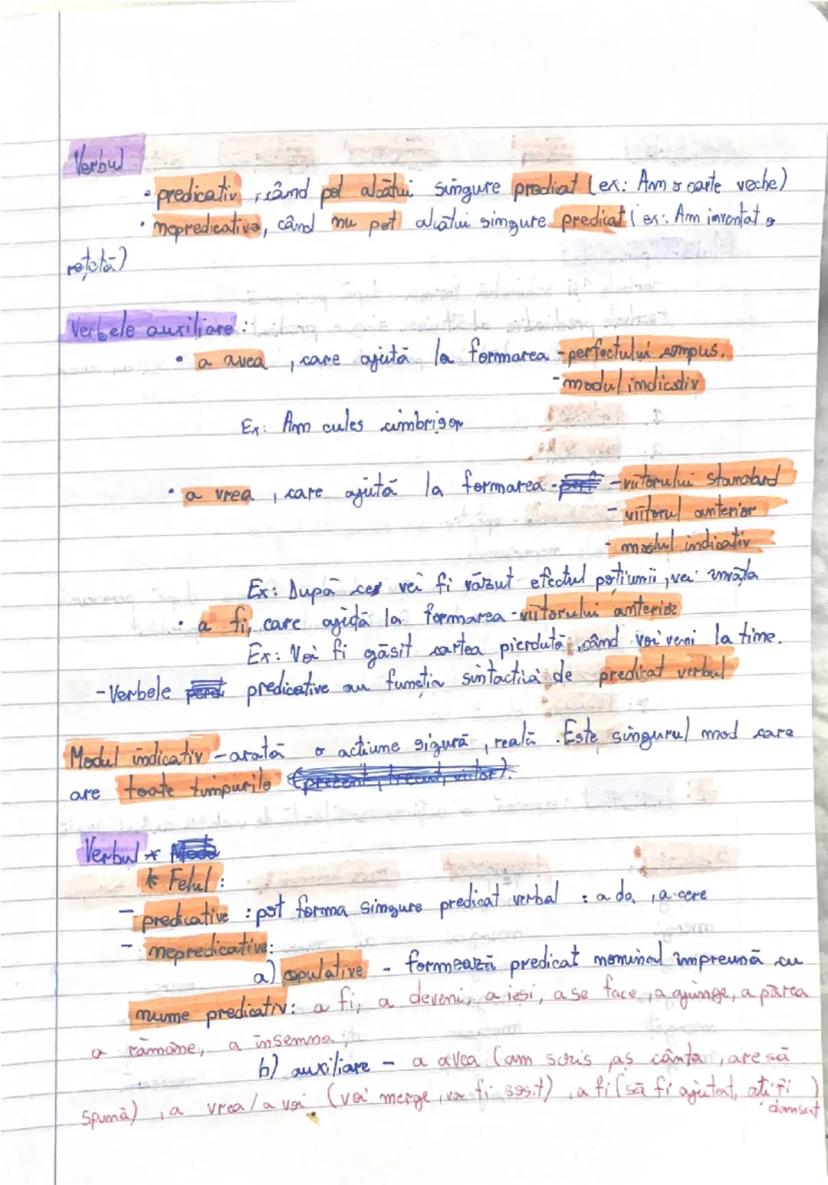 Verbul
• predicativ, când pot alcătui singure predicat (ex: Am o carte veche)
• nepredicative, când nu pot alcătui singure predicat (ex: Am inventat o
rețetă)
Verbele auxiliare:
• a avea, care ajută la formarea - perfectului compus.
- modul indicativ
Ex: Am cules cimbrișor
• a vrea, care ajută la formarea - - viitorului standard
- viitorul anterior
- modul indicativ
Ex: După ce vei fi văzut efectul poțiunii, vei învăța
• a fi, care ajută la formarea - viitorului anterior
Ex: Voi fi găsit cartea pierdută, când voi veni la tine.
- Verbele predicative au funcția sintactică de predicat verbul
Modul indicativ - arată o acțiune sigură, reală. Este singurul mod care
are toate timpurile (prezent, trecut, viitor).
Verbul *
* Felul:
- predicative: pot forma singure predicat verbal : a da, a cere
- nepredicative:
a) copulative - formează predicat nominal împreună cu
nume predicativ: a fi, a deveni, a ieși, a se face, a ajunge, a părea
a rămâne, a însemna;
b) auxiliare - a avea (am scris, aș cânta, are să
spună), a vrea/a voi (voi merge, va fi sosit), a fi (să fi ajutat, ați fi
dansat)